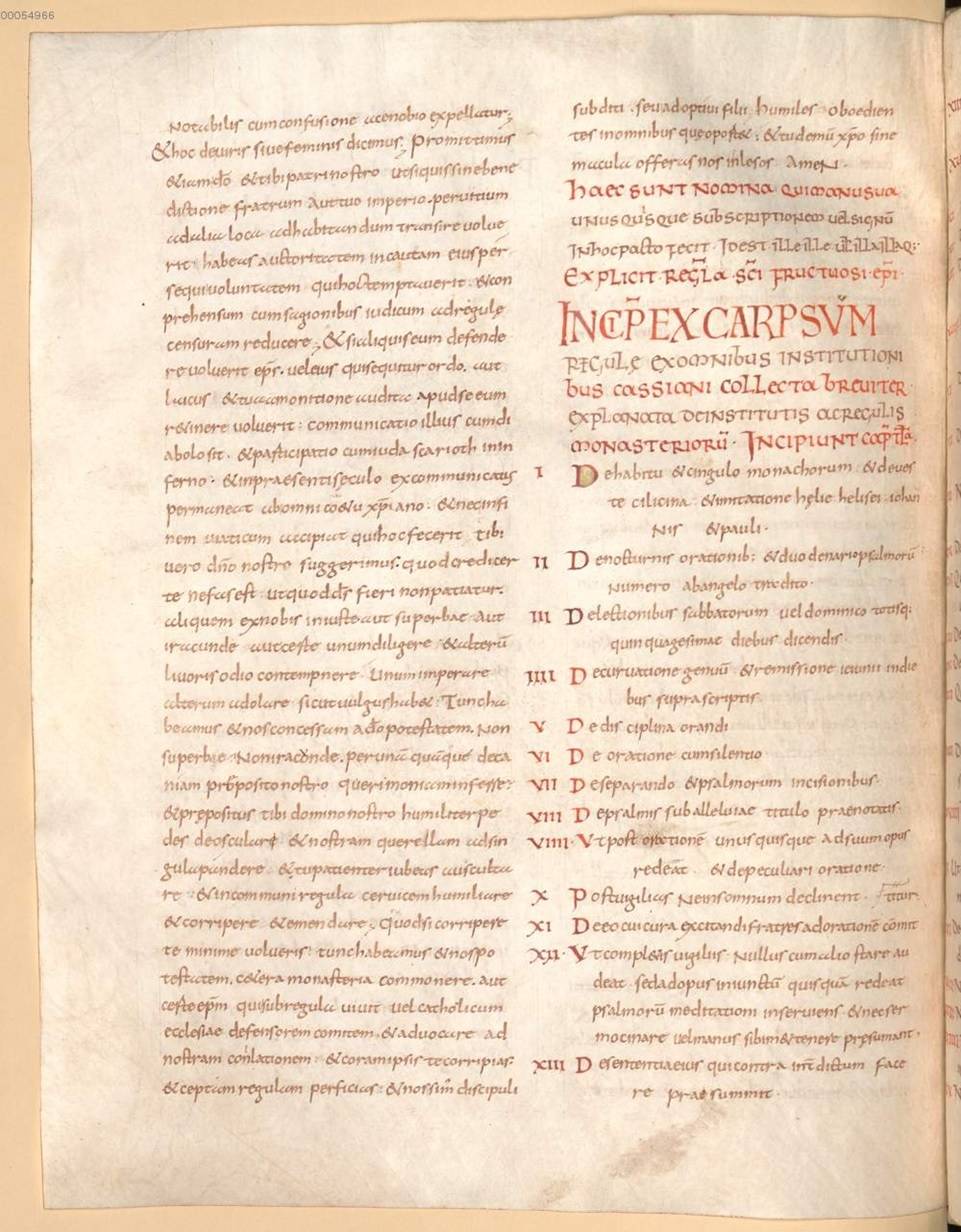 00054966
Notabilis cum confusione acenobio expellatur;
& hoc deuiris siue feminis dicimus; Promittimus
&iam dō &tibi patri nostro ut siquis sine bene
dictione fratrum aut tuo imperio. per uitium
ad alia loca ad habitandum transire volue
rit. habeas auctoritatem in cautam eius per
sequi voluntatem qui hoc temptauerit. &con
prehensum cum sagionibus iudicum ad regulę
censuram reducere; & si aliquis eum defende
re voluerit ep̄s. vel eius qui sequitur ordo. aut
laicus &tua monitione audita apud se eum
r&inere voluerit: communicatio illius cum di
abolo sit. &participatio cum iuda scarioth in in
ferno. &in praesenti seculo excommunicatus
permaneat ab omni co&u xp̄iano: &nec in fi
nem viaticum accipiat qui hoc fecerit tibi
vero dn̄o nostro suggerimus. quod credi cer
te nefas est ut quod dr̄ fieri non patiatur.
aliquem ex nobis iniuste aut superbae aut
iracunde aut certe unum diligere &alterū
liuoris odio contempnere. Unum imperare
alterum adolare sicut vulgus hab&. Tunc ha
beamus &nos concessam a dō potestatem. Non
superbae Non iracunde. per unā quāque deca
niam pr̄posito nostro querimoniam infesse.
&prepositus tibi domino nostro humiliter pe
des deosculare &nostram querellam ad sin
gula pandere &tu patienter iubeas ausculta
re &in communi regula cervicem humiliare
&corripere &emendare; Quod si corripere
te minime volueris: tunc habeamus &nos po
testatem. c&era monasteria commonere. aut
certe ep̄m qui sub regula viuit vel catholicum
ecclesiae defensorem comitem. &aduocare ad
nostram conlationem: &coram ipsis te corripias.
&ceptam regulam perficias: &nos sim̄ discipuli
subditi. seu adoptiui filii humiles oboedien
tes in omnibus quę oport&: &tu demū xp̄o sine
macula offeras nos inlesos AmeN.
haec sunt nomina qui manu sua
unus quisque subscriptionem uel signū
in hoc pacto fecit. Id est ille ille ut illa illaq:
Explicit regl̄a sc̄i fructuosi ep̄i.
INCP̄ EXCARPSVM
regulę ex omnibus institutioni
bus cassiani collecta breuiter
explanata de institutis ac regulis
monasteriorū. Incipiunt cap̄tla.
I Dehabitu &cingulo monachorum &de ues
te cilicina &imitatione hęlie helisei iohan
Nis &pauli.
II Denocturnis orationib: &duo denario psalmorū
Numero ab angelo tradito.
III Delectionibus sabbatorum vel dominico totisq:
quinquagesimae diebus dicendis
IIII Decuruatione genuū &remissione ieiunii in die
bus suprascriptis
V Dedisciplina orandi
VI De oratione cum silentio
VII Deseparando &psalmorum incisionibus
VIII Depsalmis sub alleluiae titulo praenotatis.
VIIII Vt post orationē unus quisque ad suum opus
redeat &de peculiari oratione.
X Post uigilias Ne in somnum declinent
XI Deeo cui cura excitandi fratres ad orationē cōmit titur
XII Vt compl&is uigiliis Nullus cum alio stare au
deat sed ad opus iniunctū quisquā redeat
psalmorū meditationi inseruiens &nec ser
mocinare vel manus sibi m& tenere presumant.
XIII Desententia eius qui contra int̄dictum face
re praesummit.